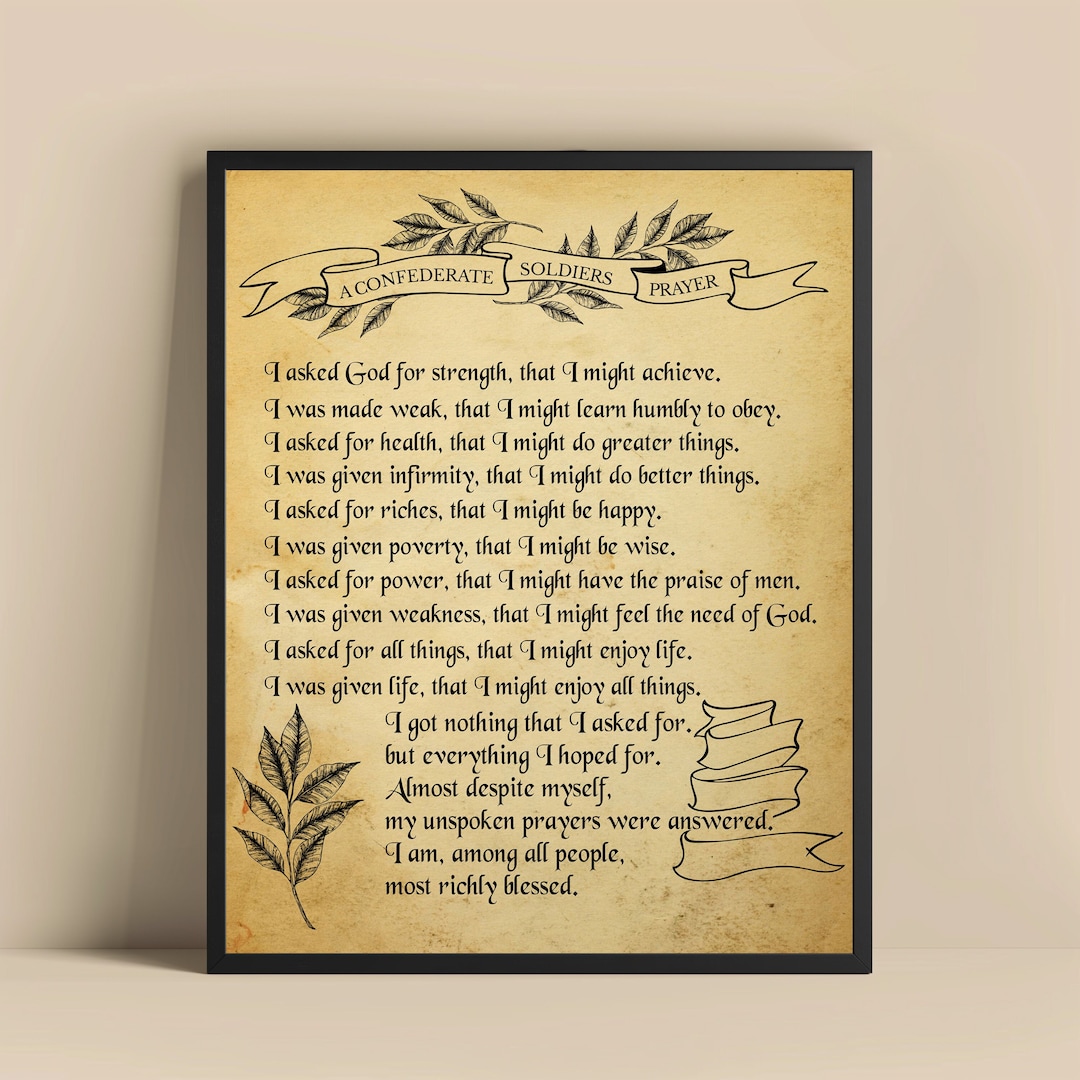 A CONFEDERATE SOLDIERS PRAYER
I asked God for strength, that I might achieve.
I was made weak, that I might learn humbly to obey.
I asked for health, that I might do greater things.
I was given infirmity, that I might do better things.
I asked for riches, that I might be happy.
I was given poverty, that I might be wise.
I asked for power, that I might have the praise of men.
I was given weakness, that I might feel the need of God.
I asked for all things, that I might enjoy life.
I was given life, that I might enjoy all things.
I got nothing that I asked for.
but everything I hoped for.
Almost despite myself,
my unspoken prayers were answered.
I am, among all people,
most richly blessed.